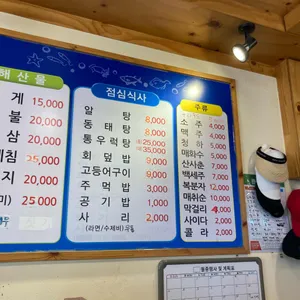 해산물
게 15,000
불 20,000
삼 20,000
25,000
지 20,000
25000
점심식사
알탕 8,000
동태탕 8,000
통우럭탕 中25,000 大35,000
회덮밥 9,000
고등어구이 9,000
주먹밥 3,000
공기밥 1,000
사리 2,000
(라면/수제비)
주류
소주 4,000
맥주 4,000
청하 5,000
매화수 5,000
산사춘 7,000
백세주 7,000
복분자 12,000
매취순 10,000
막걸리 4,000
사이다 2,000
콜라 2,000